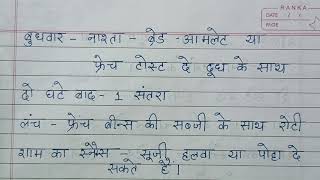 RANKA
DATE / /
PAGE
बुधवार - नाश्ता - ब्रेड - आमलेट या
फ्रेंच टोस्ट दे दूध के साथ
दो घंटे बाद - 1 संतरा
लंच - फ्रेंच बीन्स की सब्जी के साथ रोटी
शाम का स्नैक्स - सूजी हलवा या पोहा दे
सकते हैं।